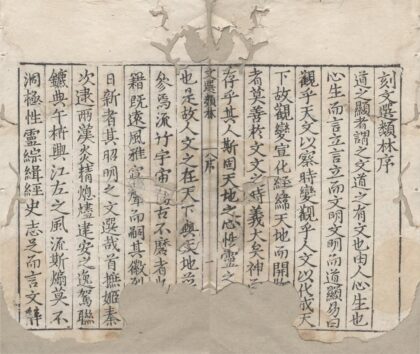 刻文選類林序
道之顯者謂之文道之有文也由人心生也
心生而言立言立而文明文明而道顯易曰
觀乎天文以察時變觀乎人文以化成天
下故觀變宣化經緯天地而開
者莫善於文文之時義大矣神
存乎其人斯固天地之心性靈之
文選類林 序
也是故人文之在天下與天地
參焉流行宇宙 古不磨者
籍既遠風雅宣 而嗣其徽
日新者其昭明之文選哉首摭姬秦
次逮兩漢炎精熄燼建安之逸駕聯
鑣典午析輿江左之風流斯煽莫不
洞極性靈綜緝經史志足而言文